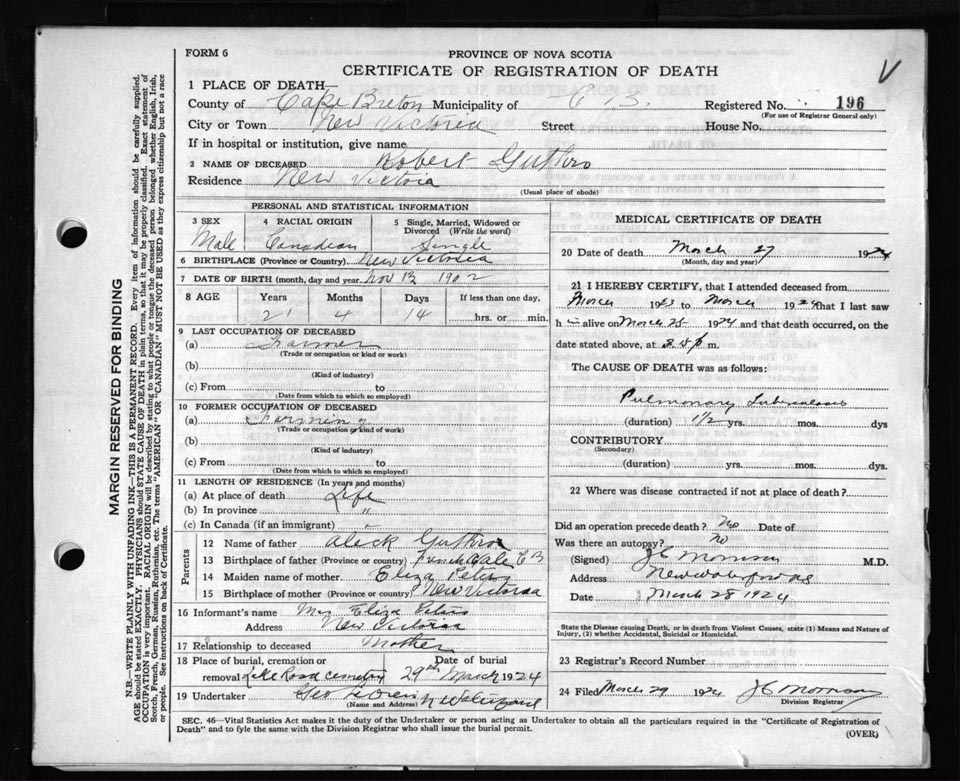 FORM 6
PROVINCE OF NOVA SCOTIA
CERTIFICATE OF REGISTRATION OF DEATH
1 PLACE OF DEATH
County of Cape Breton Municipality of C B. Registered No. 196
(For use of Registrar General only)
City or Town New Victoria Street House No.
If in hospital or institution, give name
2 NAME OF DECEASED Robert Guthro
Residence New Victoria
(Usual place of abode)
MARGIN RESERVED FOR BINDING
N.B.—WRITE PLAINLY WITH UNFADING INK—THIS IS A PERMANENT RECORD. Every item of information should be carefully supplied.
AGE should be stated EXACTLY. PHYSICIANS should STATE CAUSE OF DEATH in plain terms, so that it may be properly classified. Exact statement of
OCCUPATION is very important. RACIAL ORIGIN will be described by stating to what people or tongue the deceased person belonged whether English, Irish,
Scotch, French, German, Russian, Ruthenian, etc. The terms "AMERICAN" OR "CANADIAN" MUST NOT BE USED as they express citizenship but not a race
or people. See instructions on back of Certificate.
PERSONAL AND STATISTICAL INFORMATION
3 SEX 4 RACIAL ORIGIN 5 Single, Married, Widowed or
Divorced (Write the word)
Male Canadian Single
6 BIRTHPLACE (Province or Country) New Victoria
7 DATE OF BIRTH (month, day and year) Nov 13 1902
8 AGE Years Months Days If less than one day,
21 4 14 hrs. or min.
9 LAST OCCUPATION OF DECEASED
(a) Farmer
(Trade or occupation or kind or work)
(b)
(Kind of industry)
(c) From to
(Date from which to which so employed)
10 FORMER OCCUPATION OF DECEASED
(a) Farming
(Trade or occupation or kind of work)
(b)
(Kind of industry)
(c) From to
(Date from which to which so employed)
11 LENGTH OF RESIDENCE (In years and months)
(a) At place of death Life
(b) In province "
(c) In Canada (if an immigrant) "
Parents
12 Name of father Aleck Guthro
13 Birthplace of father (Province or country) French Vale C B
14 Maiden name of mother Eliza Peters
15 Birthplace of mother (Province or country) New Victoria
16 Informant's name Mrs Eliza Peters
Address New Victoria
17 Relationship to deceased Mother
18 Place of burial, cremation or Date of burial
removal Lake Road cemetry 29th March 1924
19 Undertaker Geo
(Name and Address)
MEDICAL CERTIFICATE OF DEATH
20 Date of death March 27 1924
(Month, day and year)
21 I HEREBY CERTIFY, that I attended deceased from
March 1923 to March 1924 that I last saw
h im alive on March 25 1924 and that death occurred, on the
date stated above, at m.
The CAUSE OF DEATH was as follows:
Pulmonary Tuberculosis
(duration) 1 1/2 yrs. mos. dys
CONTRIBUTORY
(Secondary)
(duration) yrs. mos. dys.
22 Where was disease contracted if not at place of death?
Did an operation precede death? No Date of
Was there an autopsy? No
(Signed) M.D.
Address New Waterford NS
Date March 28 1924
State the Disease causing Death, or in death from Violent Causes, state (1) Means and Nature of
Injury, (2) whether Accidental, Suicidal or Homicidal.
23 Registrar's Record Number
24 Filed March 29 1924
Division Registrar
SEC. 46—Vital Statistics Act makes it the duty of the Undertaker or person acting as Undertaker to obtain all the particulars required in the "Certificate of Registration of
Death" and to fyle the same with the Division Registrar who shall issue the burial permit.
(OVER)